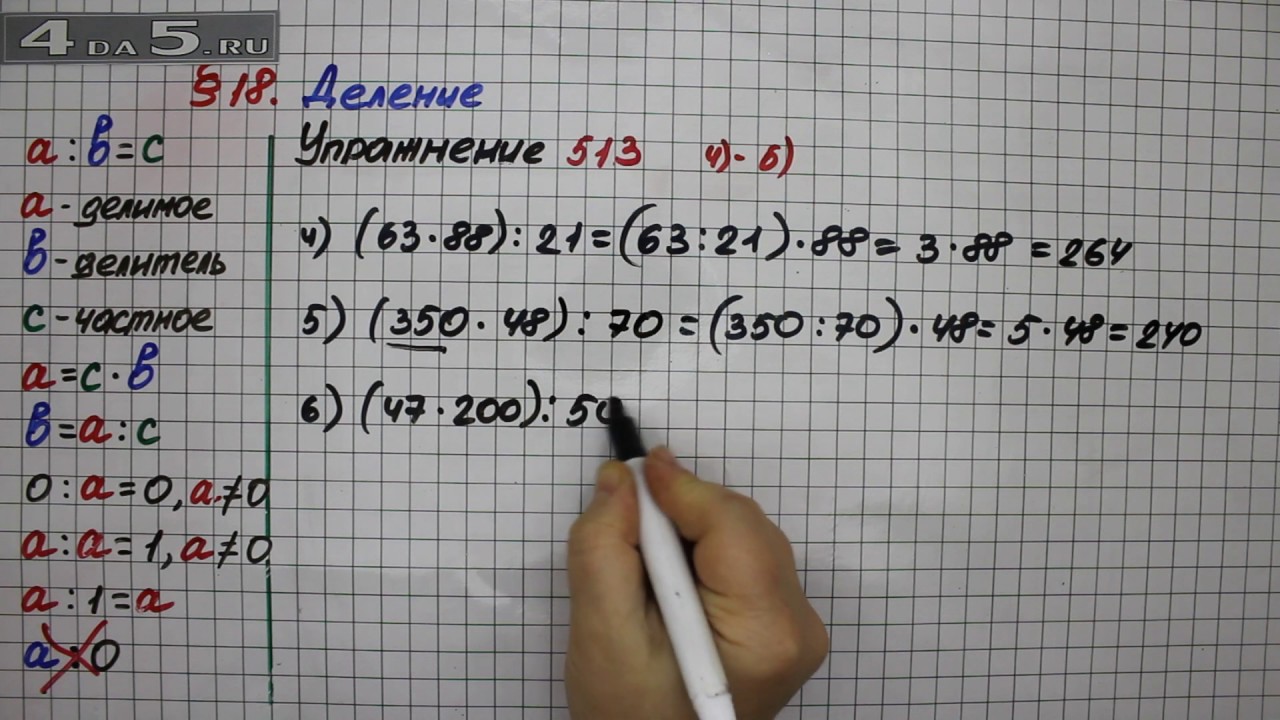 4 DA 5.RU
§ 18. Деление
Упражнение 513 4)- 6)
a : b = c
a - делимое
b - делитель
c - частное
a = c · b
b = a : c
0 : a = 0, a ≠ 0
a : a = 1, a ≠ 0
a : 1 = a
a : 0
4) (63 · 88) : 21 = (63 : 21) · 88 = 3 · 88 = 264
5) (350 · 48) : 70 = (350 : 70) · 48 = 5 · 48 = 240
6) (47 · 200) : 50